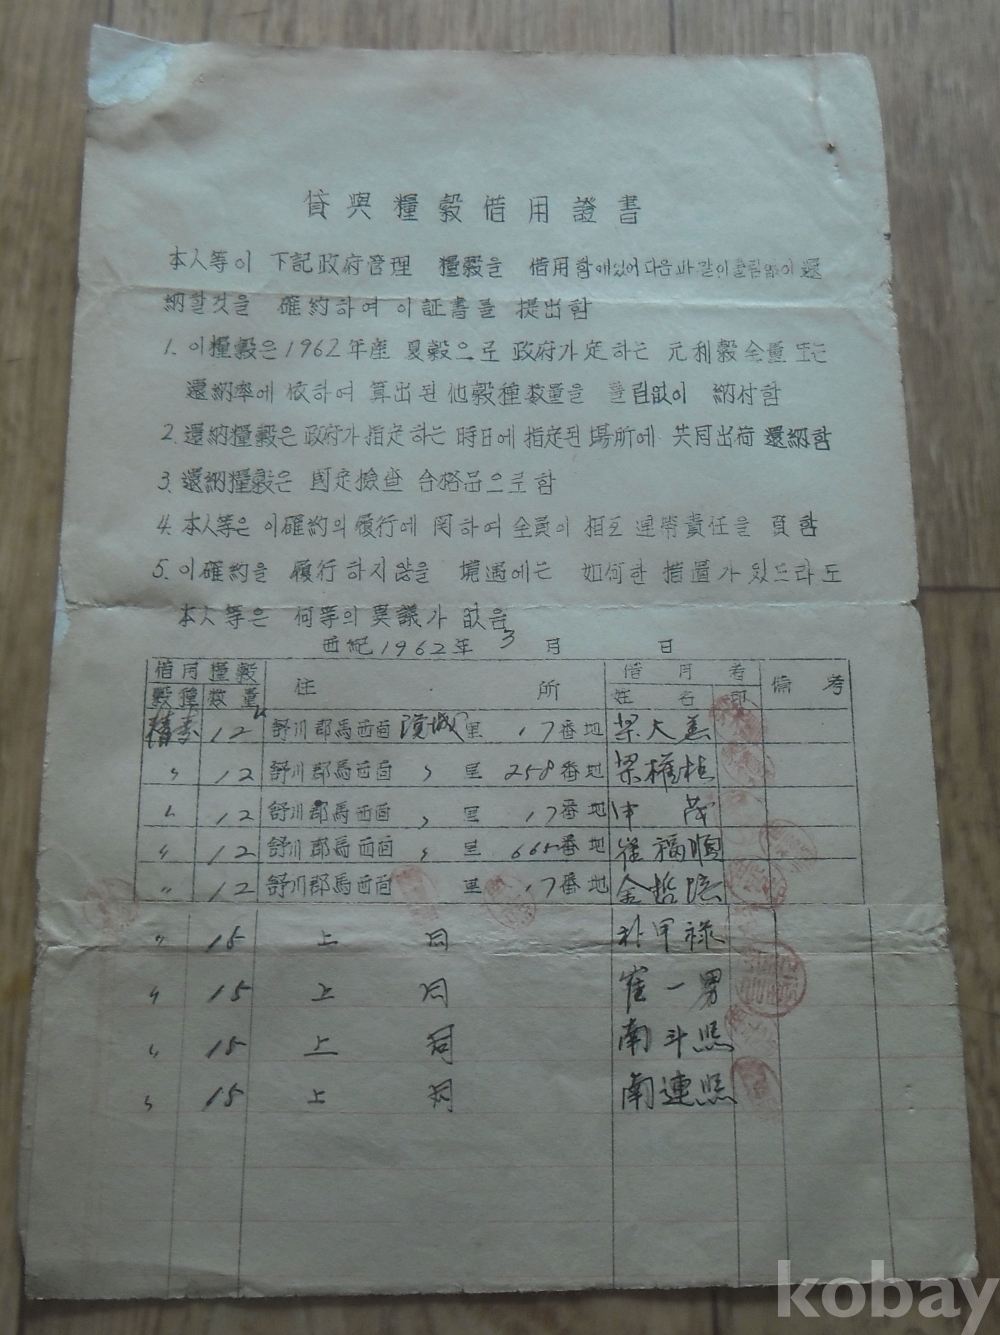 貸與糧穀借用證書
本人等이 下記政府管理 糧穀을 借用함에있어다음과같이틀림없이還
納할것을 確約하여이証書를 提出함
1. 이糧穀은1962年産 夏穀으로 政府가定하는 元利穀全量또는
還納率에 依하여 算出된他穀種数量을 틀림없이 納付함
2. 還納糧穀은政府가指定하는時日에指定된場所에 共同出荷還納함
3. 還納糧穀은 国定檢查合格品으로함
4. 本人等은 이確約의履行에 関하여全員이 相互連帶責任을 負함
5. 이確約을 履行하지않을 境遇에는 如何한 措置가있드라도
本人等은 何等의異議가 없음
西紀1962年 3 月 日
借用糧穀 住 所 借用者 備考
穀種 数量 姓名 印
12 舒川郡馬西面 里 17番地 梁大善
〃 12 舒川郡馬西面 〃 里 258番地 梁權植
〃 12 舒川郡馬西面 〃 里 17番地 茂
〃 12 舒川郡馬西面 〃 里 665番地 崔福順
〃 12 舒川郡馬西面 里 17番地 金哲
〃 15 上 同 朴甲祿
〃 15 上 同 崔一男
〃 15 上 同 南斗熙
〃 15 上 同 南連熙
kobay